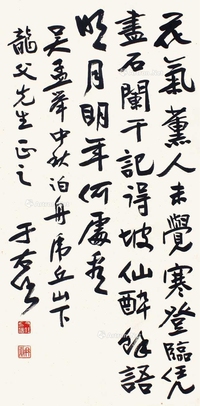 花氣薰人未覺寒登臨凭
盡石闌干記得坡仙醉後語
明月明年何處看
吳孟舉中秋泊舟虎丘山下
龍父先生正之
于右任